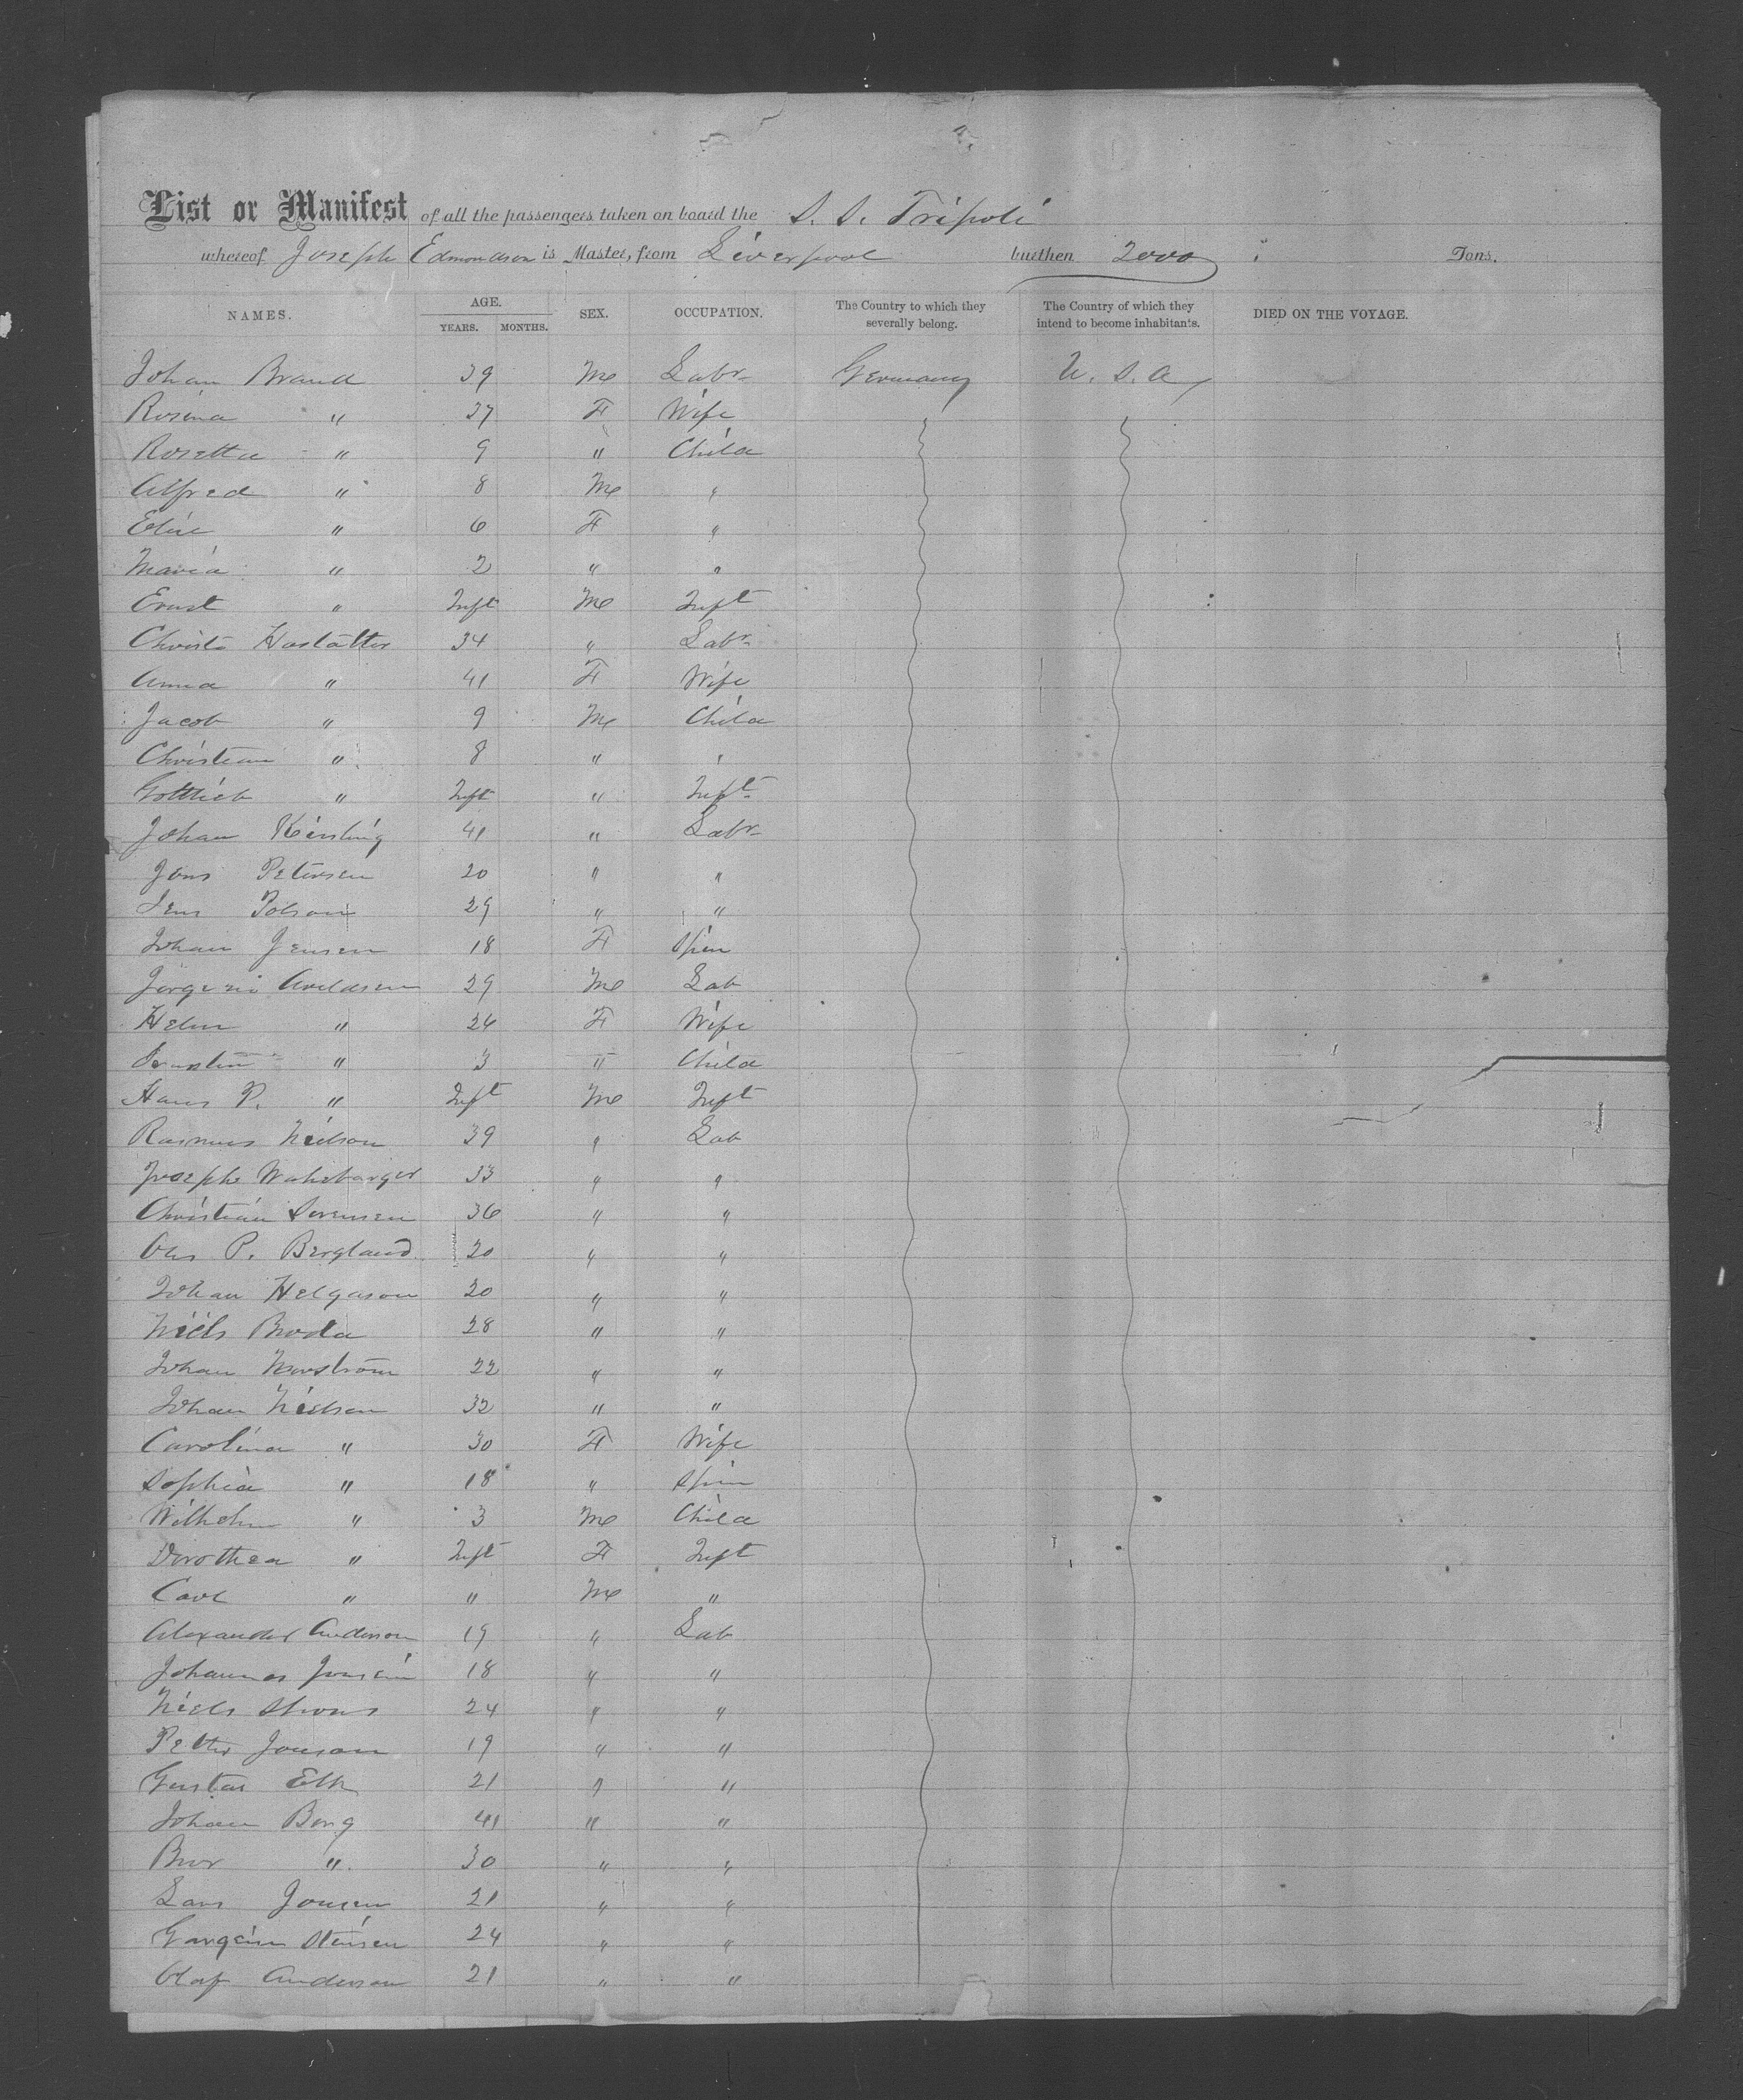 List or Manifest of all the passengers taken on board the S. S. Tripoli
whereof Joseph Edmondson is Master, from Liverpool burthen 2000 Tons.
NAMES. AGE. YEARS. MONTHS. SEX. OCCUPATION. The Country to which they severally belong. The Country of which they intend to become inhabitants. DIED ON THE VOYAGE.
Johan Brand 39 M Labr Germany U. S. A
Rosina " 37 F Wife
Rosetta " 9 " Child
Alfred " 8 M "
Elise " 6 F "
Maria " 2 " "
Ernst " Inft M Inft
Christ Hostatter 34 " Labr
Anna " 41 F Wife
Jacob " 9 M Child
Christian " 8 " "
Gottlieb " Inft " Inft
Johan Kinsling 41 " Labr
Jons Petersen 20 " "
Jens Polson 29 " "
Johan Jensen 18 F Spin
Arildsen 29 M Lab
Helen " 26 F Wife
" 3 " Child
Hans P. " Inft M Inft
Rasmus Nielson 39 " Lab
Joseph 33 " "
Christian Sorensen 36 " "
Ole P. Bergland 20 " "
Johan Helgason 20 " "
Niels Broda 28 " "
Johan 22 " "
Johan Nielson 32 " "
Carolina " 30 F Wife
Sophia " 18 " Spin
Wilhelm " 3 M Child
Dorothea " Inft F Inft
Carl " " M "
Alexander Anderson 19 " Lab
Johannes Jonsen 18 " "
Niels 24 " "
Petter Jonson 19 " "
Gustav Elk 21 " "
Johan Borg 41 " "
Bror " 30 " "
Lars Jonsen 21 " "
Stensen 24 " "
Olof Anderson 21 " "